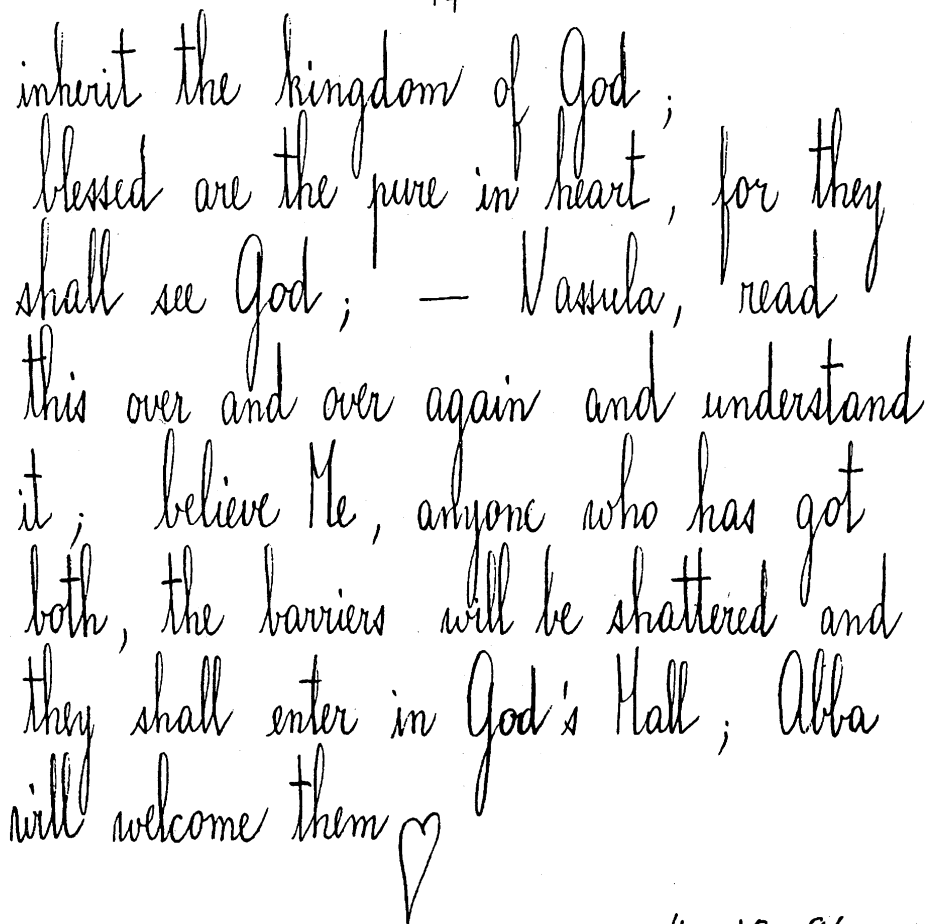 inherit the kingdom of God ;
blessed are the pure in heart, for they
shall see God ; — Vassula, read
this over and over again and understand
it ; believe Me, anyone who has got
both, the barriers will be shattered and
they shall enter in God's Hall ; Abba
will welcome them ♡